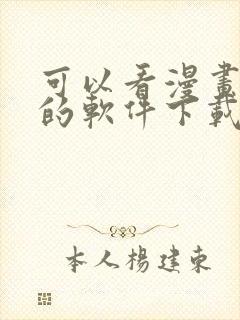 可以看漫畫
的軟件下載
本人楊建東